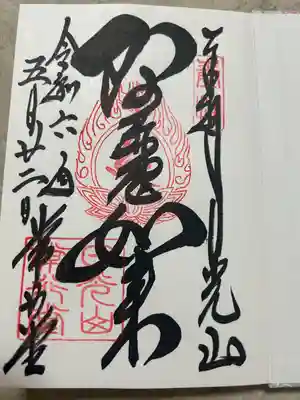 奉拝 日光山
阿弥陀如来
令和六年
五月廿二日 常行堂